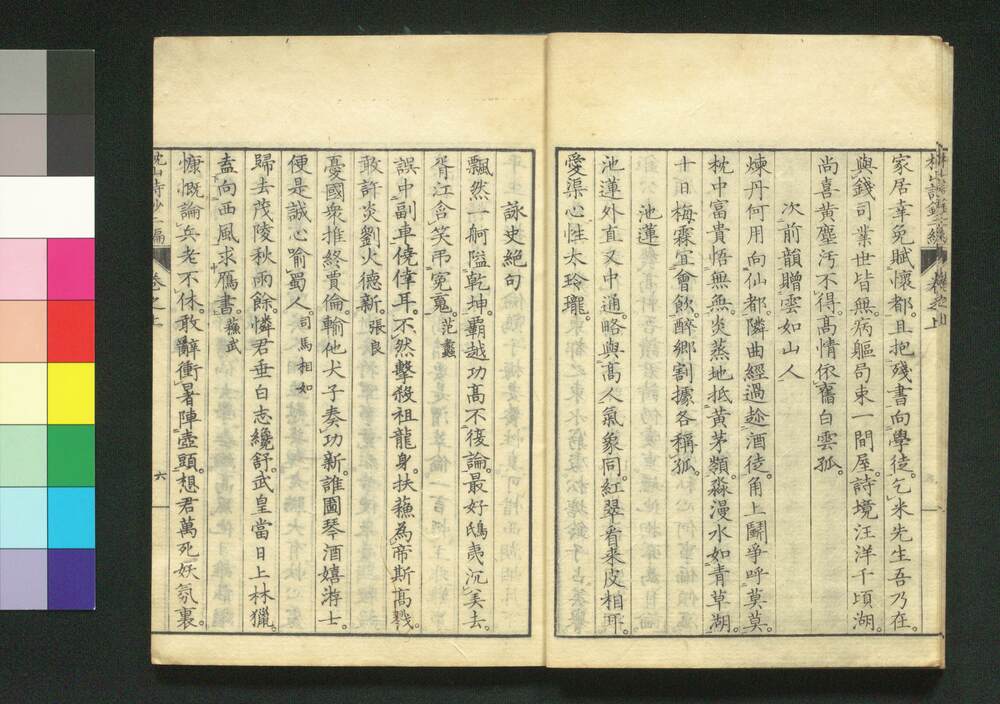 家居幸免賦懷都。且把殘書向學徒。乞米先生吾乃在。
與錢司業世皆無。病軀局束一間屋。詩境汪洋千頃湖。
尚喜黃塵汚不得。高情依舊白雲孤。
次前韻贈雲如山人
煉丹何用向仙都。隣曲經過趂酒徒。角上鬪爭呼莫莫。
枕中富貴悟無無。炎蒸地抵黃茅類。淼漫水如青草湖。
十日梅霖宜會飲。醉鄉割據各稱孤。
池蓮
池蓮外直又中通。略與高人氣象同。紅翠看來皮相耳。
愛渠心性太玲瓏。
詠史絕句
飄然一舸隘乾坤。霸越功高不復論。最好鴟夷沉美去。
胥江含笑弔冤寃。范蠡
誤中副車僥倖耳。不然擊殺祖龍身。扶蘓為帝斯高戮。
敢許炎劉火德新。張良
憂國衆推終賈倫。輸他犬子奏功新。誰圖琴酒嬉游士。
便是誠心喻蜀人。司馬相如
歸去茂陵秋雨餘。憐君垂白志纔舒。武皇當日上林獵。
盍向西風求雁書。蘓武
慷慨論兵老不休。敢辭衝暑陣壺頭。想君萬死妖氛裏。
枕山詩鈔二編
卷之上
六